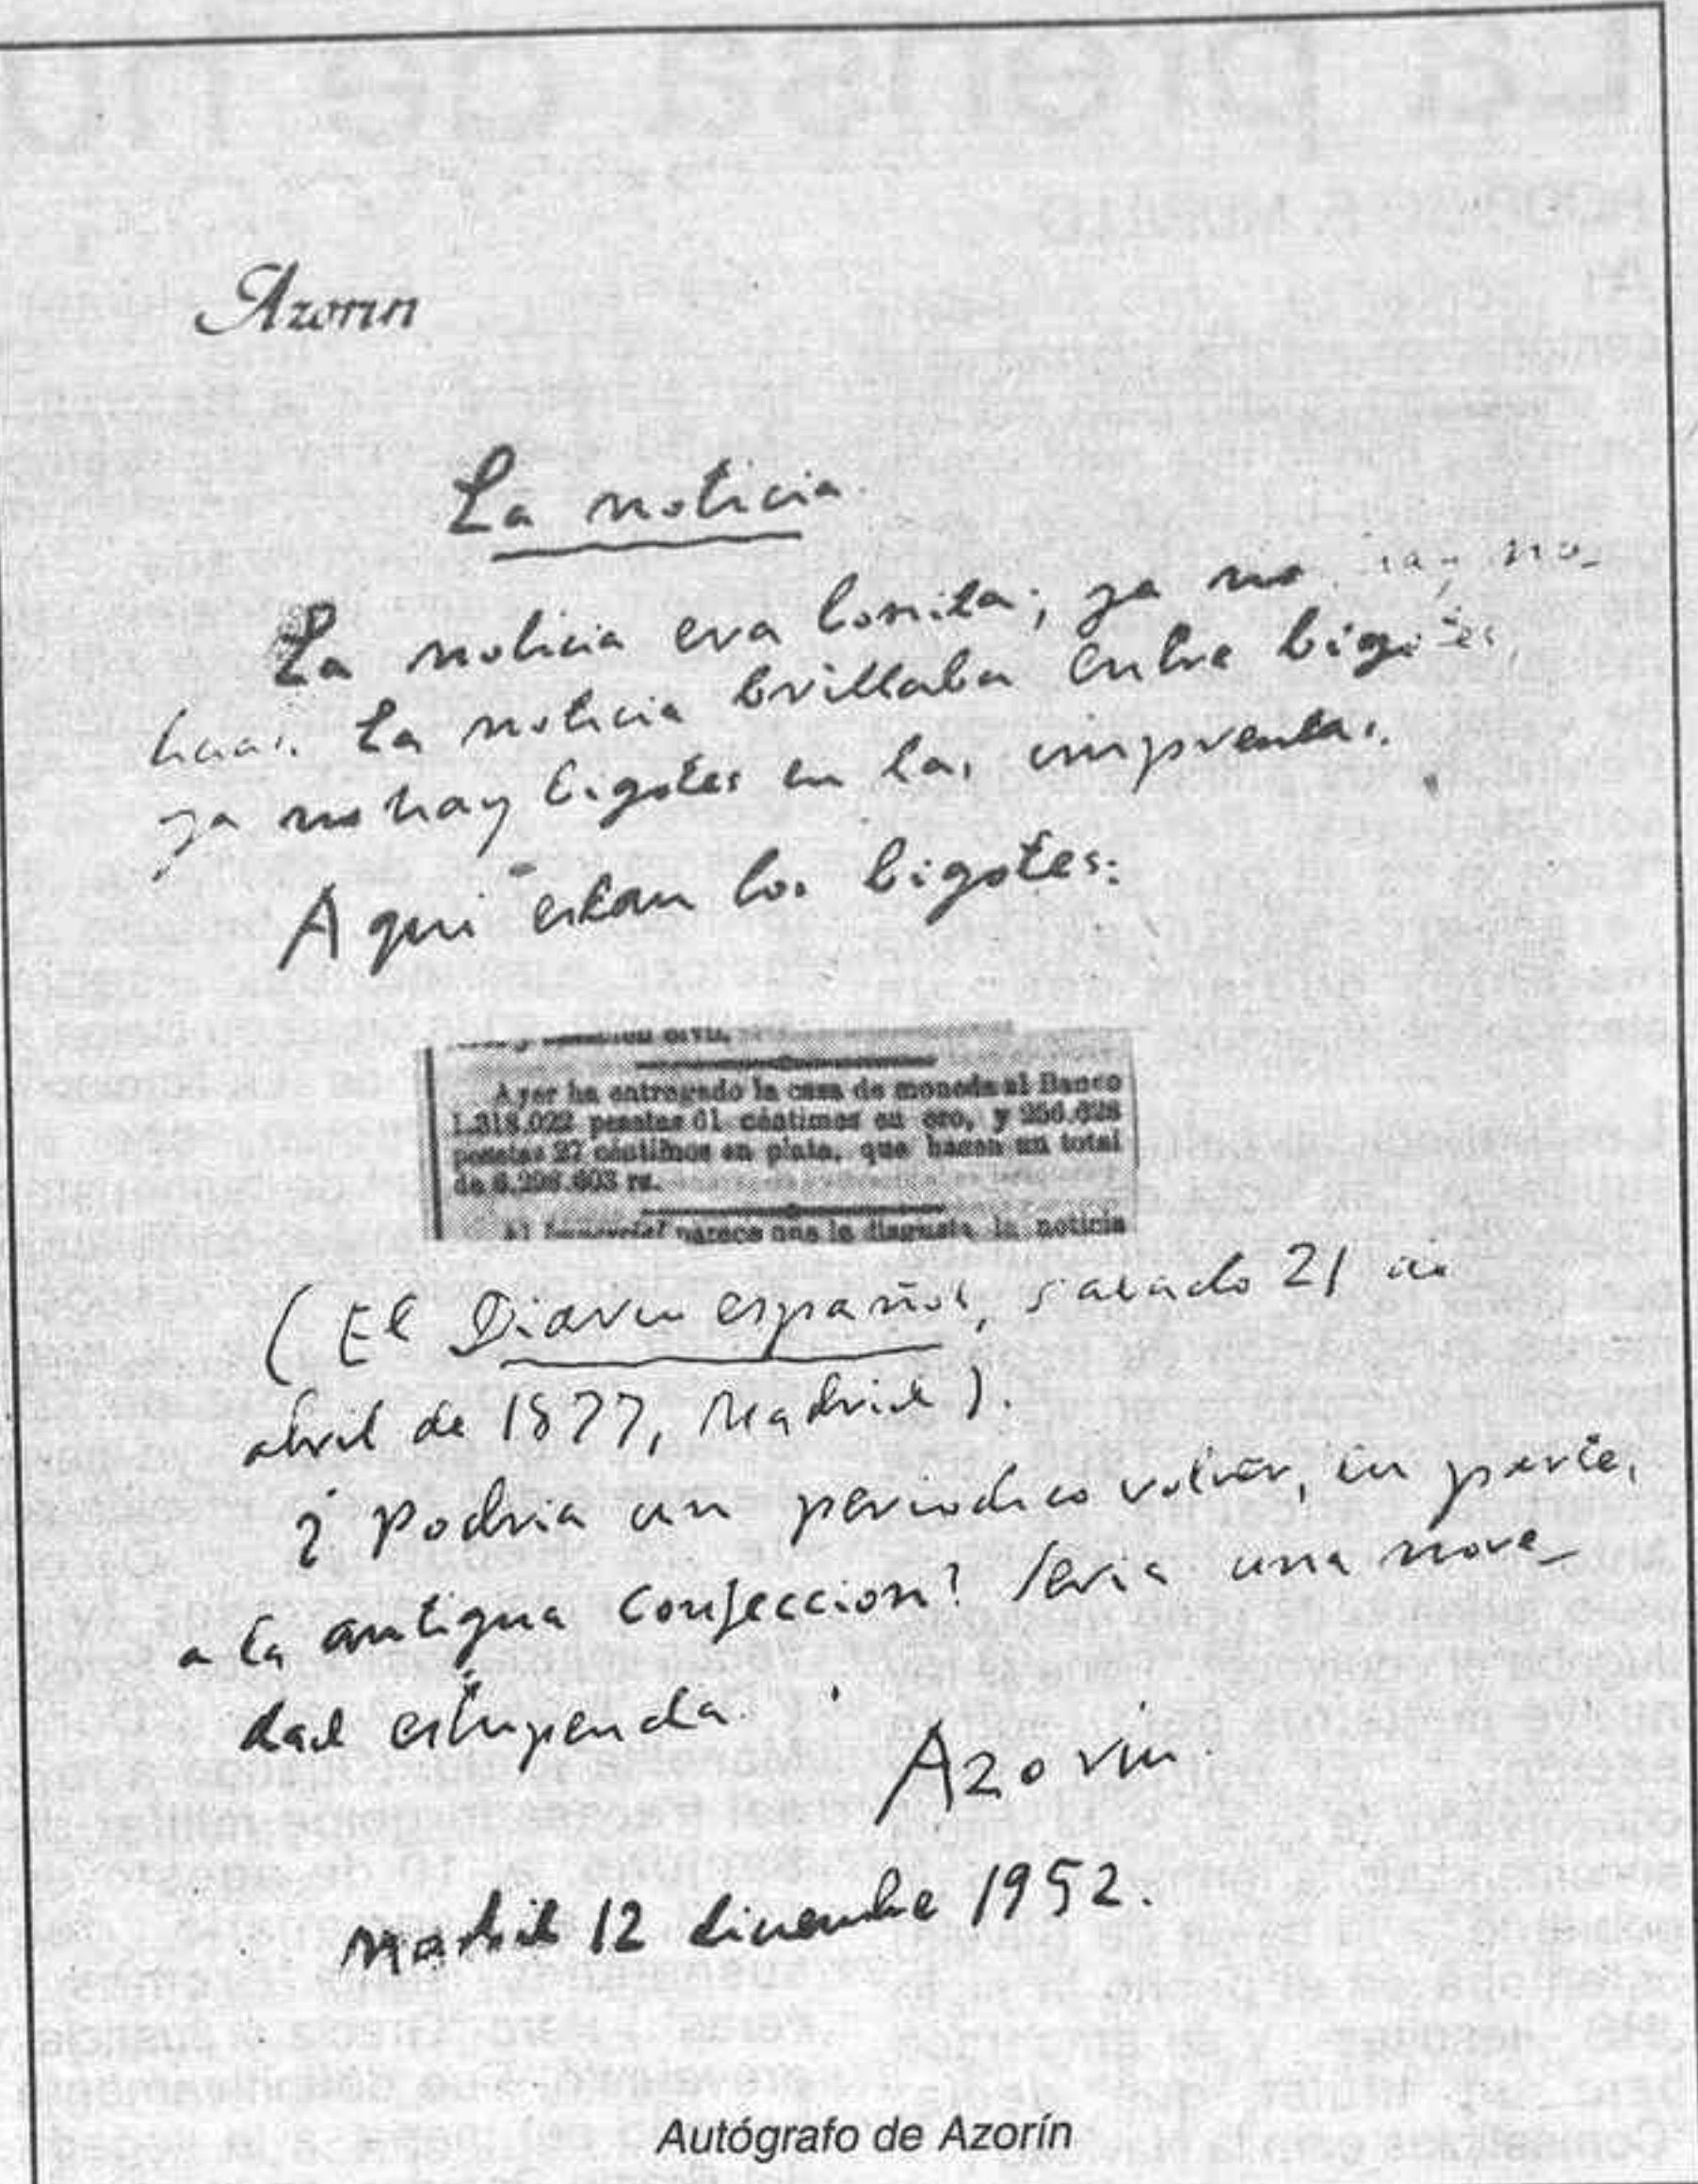 Azorín
La noticia
La noticia era bonita; ya no hay no-
ticias. La noticia brillaba entre bigotes,
ya no hay bigotes en las imprentas.
Aqui estan los bigotes:
civil.
Ayer ha entregado la casa de moneda al Banco
1.318.022 pesetas 61 céntimos en oro, y 256.628
pesetas 27 céntimos en plata, que hacen un total
de 6.298.603 rs.
Al Imparcial parece que le disgusta la noticia
(El Diario español, sabado 21 de
abril de 1877, Madrid).
¿Podria un periodico volver, en parte,
a la antigua confeccion? Seria una nove-
dad estupenda.
Azorin.
Madrid 12 diciembre 1952.
Autógrafo de Azorín